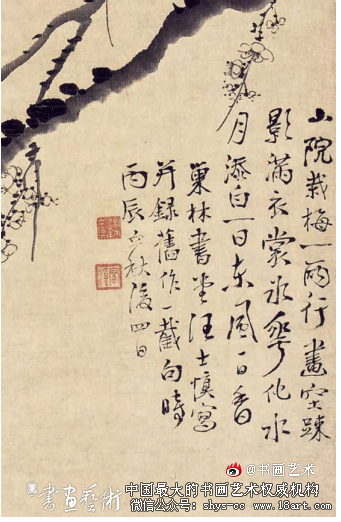 小院栽梅一兩行畫空疎
影滿衣裳冰華化水
月添白一日東風一日香
巢林書堂汪士慎寫
并錄舊作一截句時
丙辰立秋後四日
@书画艺术
書畫藝術
中国最大的书画艺术权威机构
微信公众号:shys-cc www.18art.com